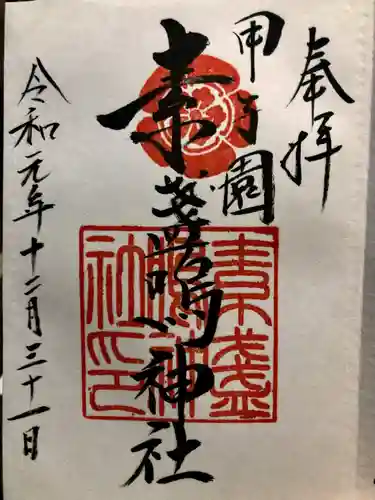 奉拝
甲子園
素盞嗚神社
令和元年十二月三十一日
素盞
嗚神
社印